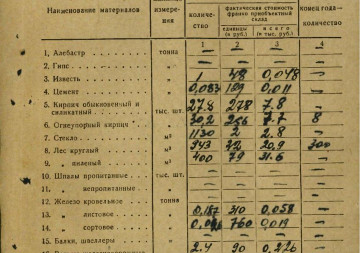 Наименование материалов
измере-
ния
количе-
ство
фактическая стоимость
франко приобъектный
склад
единицы
(в руб.)
всего
(в тыс. руб.)
конец года—
количество
1 2 3 4
1. Алебастр тонна — — — —
2. Гипс " — — — —
3. Известь " 1 48 0,048 —
4. Цемент " 0,083 129 0,011 —
5. Кирпич обыкновенный и
силикатный тыс. шт. 27.8 278 7.8 —
6. Огнеупорный кирпич " 30,2 256 7.7 8
7. Стекло м² 1130 2 2.8 —
8. Лес круглый м³ 343 32 20,9 300
9. " пиленый м³ 400 79 31.6 —
10. Шпалы пропитанные тыс. шт. — — — —
11. " непропитанные " — — — —
12. Железо кровельное тонна — — — —
13. " листовое " 0,187 310 0,058 —
14. " сортовое " 760 0,019 —
15. Балки, швеллеры " — — — —
2.4 90 0,226 —